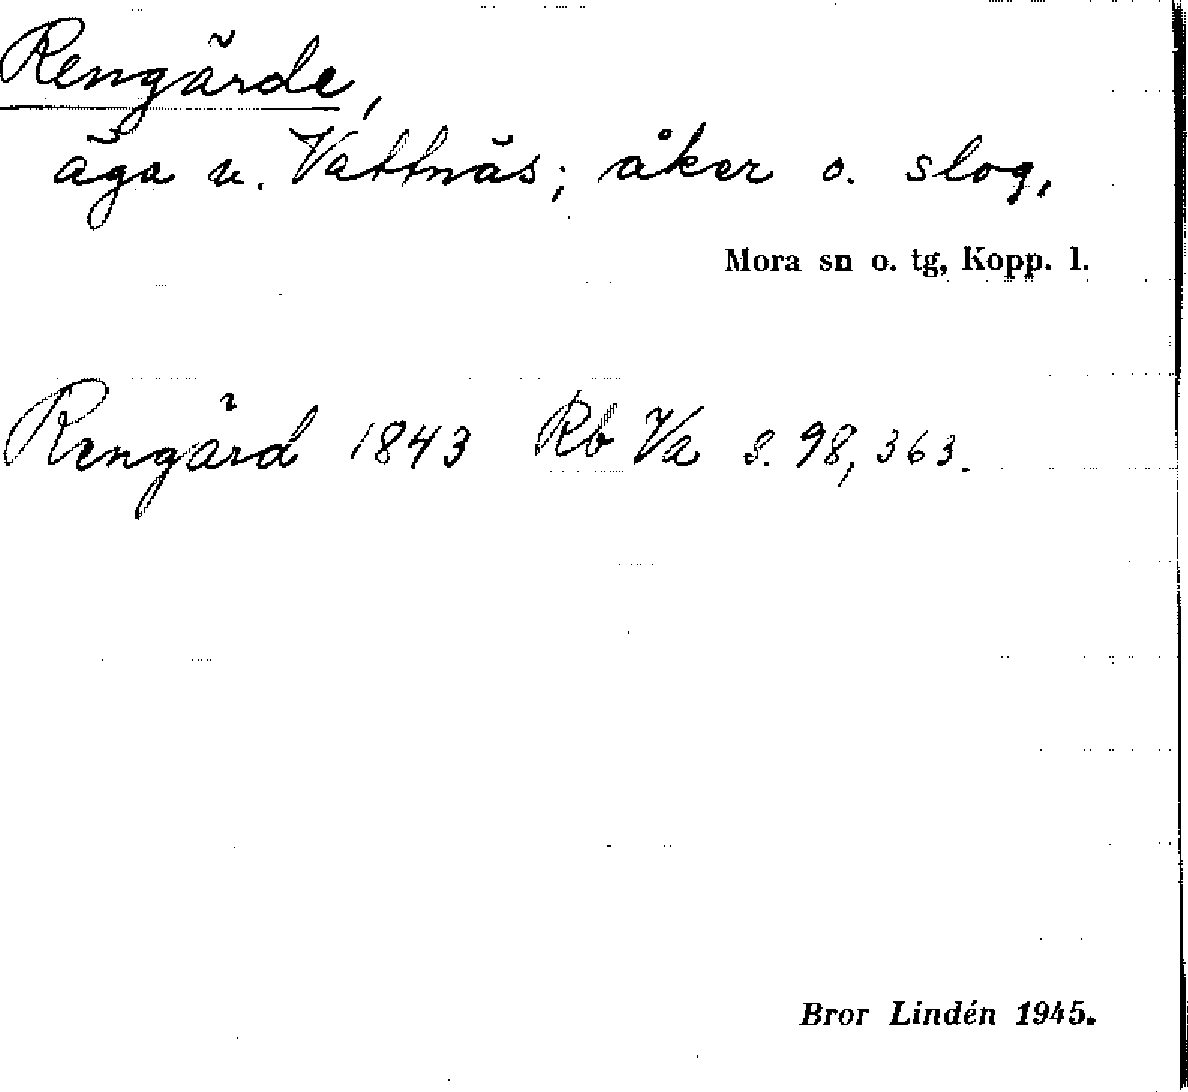 Rengärde,
äga u. Vattnäs; åker o. slog,
Mora sn o. tg, Kopp. l.
Rengärd 1843 Rb Va s. 98, 363.
Bror Lindén 1945.